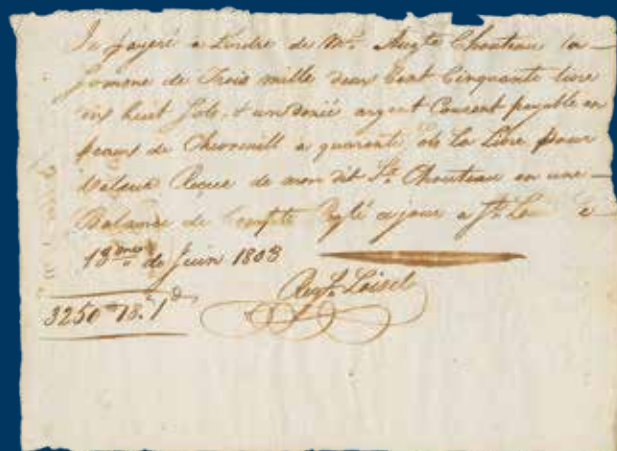 Je payeré a Lordre de Mr. Augte Chouteau la
Somme de Trois mille deux Cent Cinquante livre
dix huit Sols, & un denié argent Courent payable en
peaux de Chevreuill a quarante sols la Livre pour
Valeur Reçue de mon dit Sr. Chouteau en une
Balance de Compte Reglé ce jour a St. Louis
18me de Juin 1803
Regis Loisel
3250tt 18s 1d